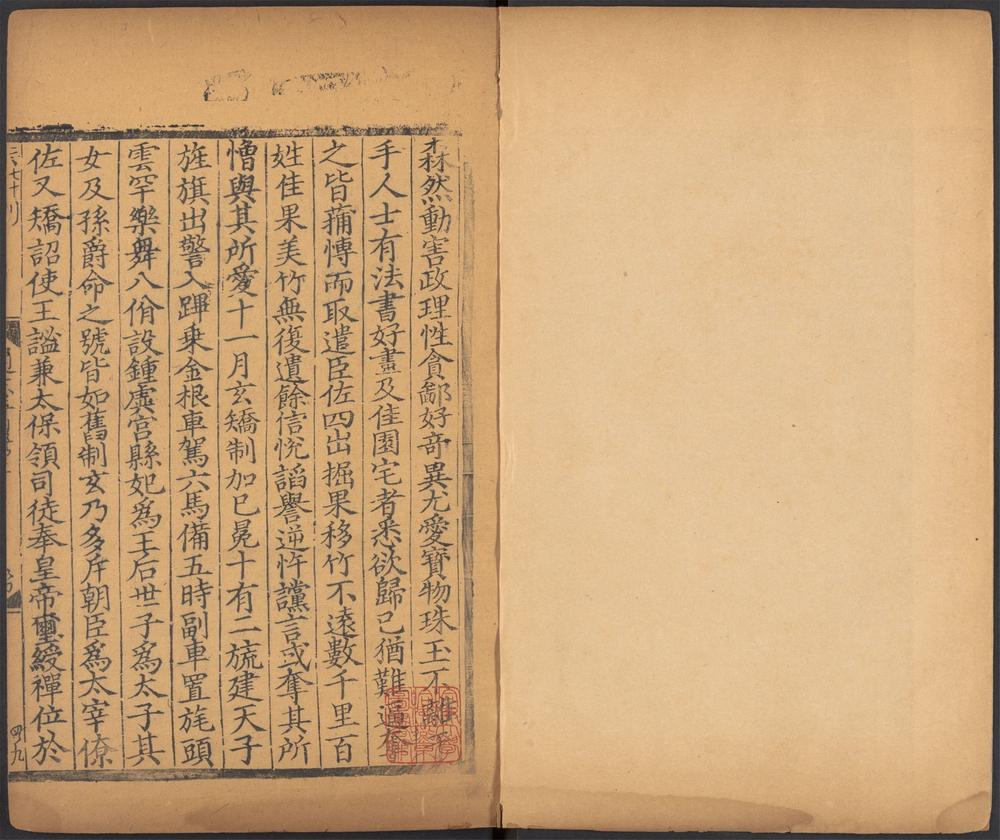 森然動害政理性貪鄙好竒異尤愛寳物珠玉不離
手人士有法書好畫及佳園宅者悉欲歸已猶難逼奪
之皆蒱愽而取遣臣佐四出掘果移竹不遠數千里百
姓佳果美竹無復遺餘信恱諂譽逆忤讜言或奪其所
憎與其所愛十一月玄矯制加已冕十有二旒建天子
旌旗出警入蹕乗金根車駕六馬備五時副車置旄頭
雲罕樂舞八佾設鍾虡宫縣妃爲王后世子爲太子其
女及孫爵命之號皆如舊制玄乃多斥朝臣爲太宰僚
佐又矯詔使王謐兼太保領司徒奉皇帝璽綬禪位於
四九